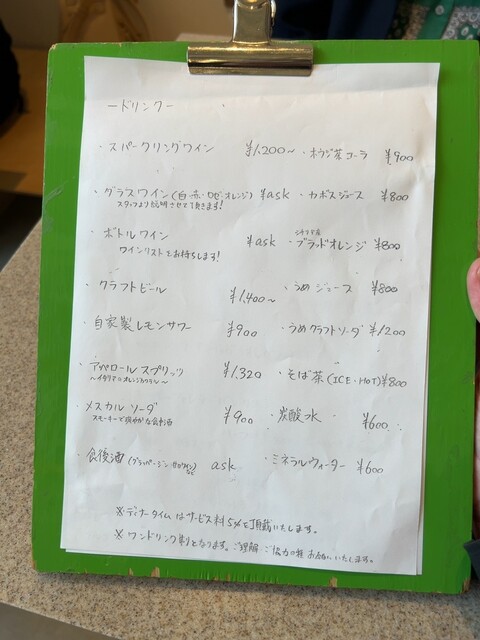 ードリンクー
・スパークリングワイン ¥1,200〜 ・ホウジ茶コーラ ¥900
・グラスワイン(白・赤・ロゼ・オレンジ) ¥ask ・カボスジュース ¥800
スタッフより説明させて頂きます!
・ボトルワイン ¥ask ・ブラッドオレンジ ¥800
ワインリストをお持ちします!
・クラフトビール ¥1,400〜 ・うめジュース ¥800
・自家製レモンサワー ¥900 ・うめクラフトソーダ ¥1,200
・アペロールスプリッツ ¥1,320 ・そば茶(ICE・HOT) ¥800
〜イタリアのオレンジカクテル〜
・メスカルソーダ ¥900 ・炭酸水 ¥600
スモーキーで爽やかな食中酒
・食後酒(グラッパ・ジン など) ask ・ミネラルウォーター ¥600
※ディナータイムはサービス料5%を頂戴いたします。
※ワンドリンク制となります。ご理解・ご協力の程お願いいたします。